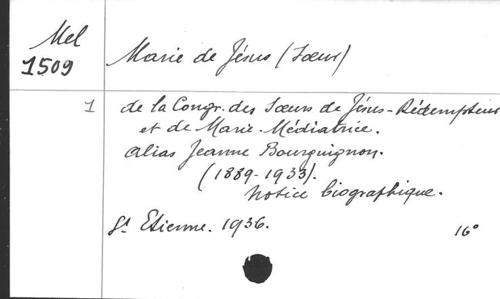 Mel
1509
Marie de Jésus (Sœur)
1
de la Congr. des Sœurs de Jésus-Rédempteur
et de Marie-Médiatrice.
alias Jeanne Bourguignon.
(1889-1933).
Notice biographique.
St Etienne. 1936.
16°